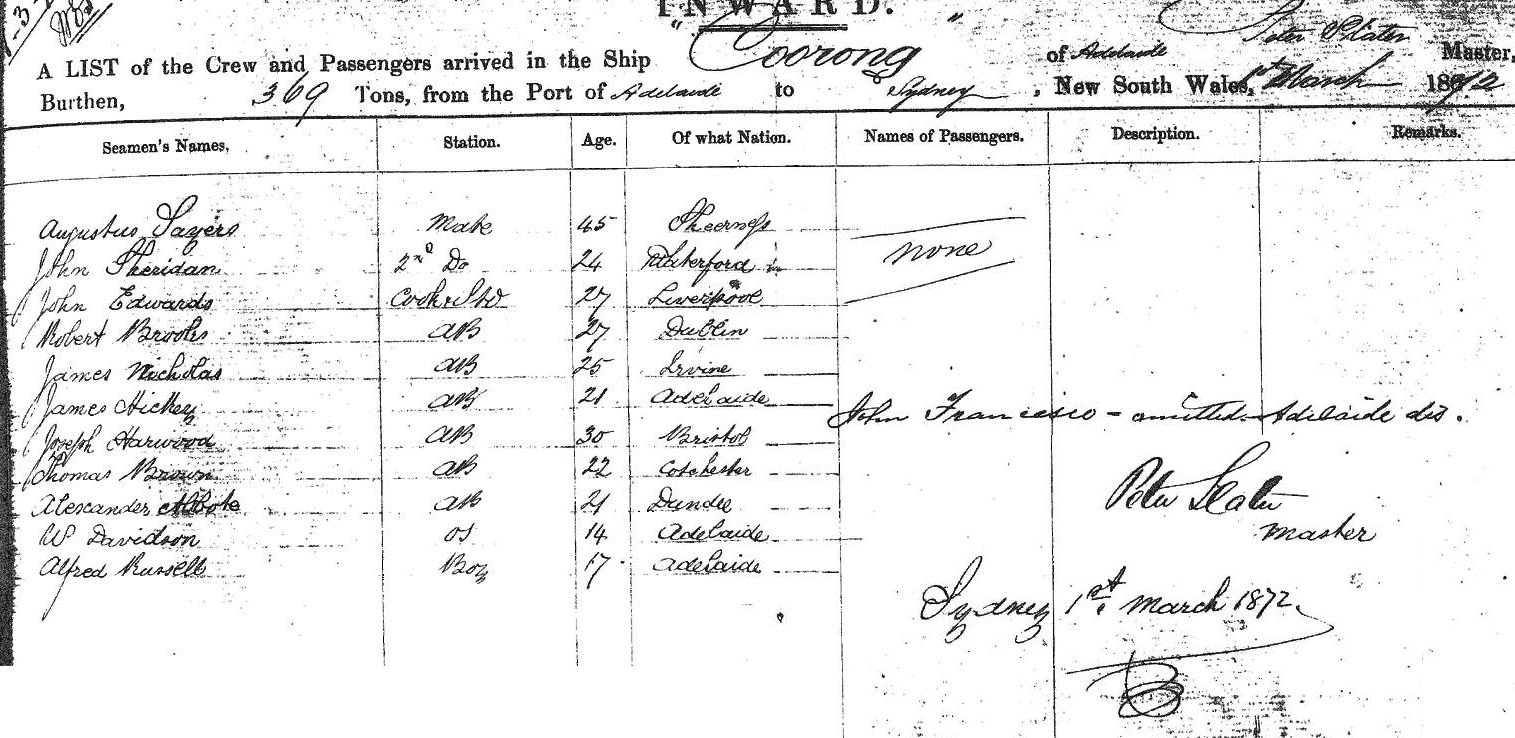 INWARD.
A LIST of the Crew and Passengers arrived in the Ship "Coorong" of Adelaide Peter Slater Master,
Burthen, 369 Tons, from the Port of Adelaide to Sydney, New South Wales, 1st March 1872
Seamen's Names. Station. Age. Of what Nation. Names of Passengers. Description. Remarks.
Augustus Sayers Mate 45 Sheerness
none
John Sheridan 2nd Do 24 Waterford
John Edwards Cook & Std 27 Liverpool
Robert Brooks AB 27 Dublin
James Nicholas AB 25 Irvine
James Hickey AB 21 Adelaide
John Francisco - omitted - Adelaide dis.
Joseph Harwood AB 30 Bristol
Thomas Brown AB 22 Colchester
Alexander Abbote AB 21 Dundee
Peter Slater
Master
W Davidson OS 14 Adelaide
Alfred Russell Boy 17 Adelaide
Sydney 1st March 1872.